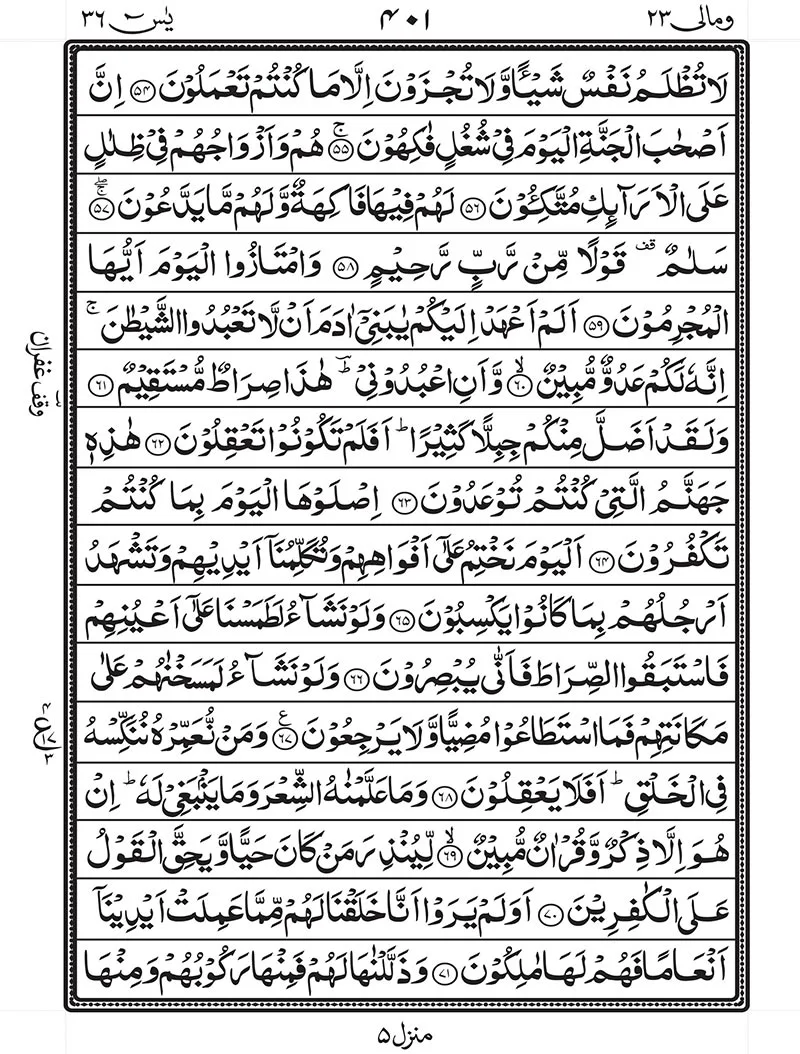 ومالی ٢٣
٤٠١
يٰسٓ ٣٦
لَا تُظْلَمُ نَفْسٌ شَيْـًٔا وَّلَا تُجْزَوْنَ اِلَّا مَا كُنْتُمْ تَعْمَلُوْنَ ﴿٥٤﴾ اِنَّ
اَصْحٰبَ الْجَنَّةِ الْيَوْمَ فِيْ شُغُلٍ فٰكِهُوْنَ ۚ﴿٥٥﴾ هُمْ وَاَزْوَاجُهُمْ فِيْ ظِلٰلٍ
عَلَى الْاَرَآىِٕكِ مُتَّكِـُٔوْنَ ﴿٥٦﴾ لَهُمْ فِيْهَا فَاكِهَةٌ وَّلَهُمْ مَّا يَدَّعُوْنَ ۚۖ﴿٥٧﴾
سَلٰمٌ ۫ قف قَوْلًا مِّنْ رَّبٍّ رَّحِيْمٍ ﴿٥٨﴾ وَامْتَازُوا الْيَوْمَ اَيُّهَا
الْمُجْرِمُوْنَ ﴿٥٩﴾ اَلَمْ اَعْهَدْ اِلَيْكُمْ يٰبَنِيْٓ اٰدَمَ اَنْ لَّا تَعْبُدُوا الشَّيْطٰنَ ۚ
اِنَّهٗ لَكُمْ عَدُوٌّ مُّبِيْنٌ ۙ﴿٦٠﴾ وَّاَنِ اعْبُدُوْنِيْ ؕ هٰذَا صِرَاطٌ مُّسْتَقِيْمٌ ﴿٦١﴾
وَلَقَدْ اَضَلَّ مِنْكُمْ جِبِلًّا كَثِيْرًا ؕ اَفَلَمْ تَكُوْنُوْا تَعْقِلُوْنَ ﴿٦٢﴾ هٰذِهٖ
جَهَنَّمُ الَّتِيْ كُنْتُمْ تُوْعَدُوْنَ ﴿٦٣﴾ اِصْلَوْهَا الْيَوْمَ بِمَا كُنْتُمْ
تَكْفُرُوْنَ ﴿٦٤﴾ اَلْيَوْمَ نَخْتِمُ عَلٰٓى اَفْوَاهِهِمْ وَتُكَلِّمُنَآ اَيْدِيْهِمْ وَتَشْهَدُ
اَرْجُلُهُمْ بِمَا كَانُوْا يَكْسِبُوْنَ ﴿٦٥﴾ وَلَوْ نَشَآءُ لَطَمَسْنَا عَلٰٓى اَعْيُنِهِمْ
فَاسْتَبَقُوا الصِّرَاطَ فَاَنّٰى يُبْصِرُوْنَ ﴿٦٦﴾ وَلَوْ نَشَآءُ لَمَسَخْنٰهُمْ عَلٰى
مَكَانَتِهِمْ فَمَا اسْتَطَاعُوْا مُضِيًّا وَّلَا يَرْجِعُوْنَ ﴿٦٧﴾ ع وَمَنْ نُّعَمِّرْهُ نُنَكِّسْهُ
فِي الْخَلْقِ ؕ اَفَلَا يَعْقِلُوْنَ ﴿٦٨﴾ وَمَا عَلَّمْنٰهُ الشِّعْرَ وَمَا يَنْۢبَغِيْ لَهٗ ؕ اِنْ
هُوَ اِلَّا ذِكْرٌ وَّقُرْاٰنٌ مُّبِيْنٌ ۙ﴿٦٩﴾ لِّيُنْذِرَ مَنْ كَانَ حَيًّا وَّيَحِقَّ الْقَوْلُ
عَلَى الْكٰفِرِيْنَ ﴿٧٠﴾ اَوَلَمْ يَرَوْا اَنَّا خَلَقْنَا لَهُمْ مِّمَّا عَمِلَتْ اَيْدِيْنَآ
اَنْعَامًا فَهُمْ لَهَا مٰلِكُوْنَ ﴿٧١﴾ وَذَلَّلْنٰهَا لَهُمْ فَمِنْهَا رَكُوْبُهُمْ وَمِنْهَا
وقف غفران
ع ٤ ١٧ ٣
منزل ٥